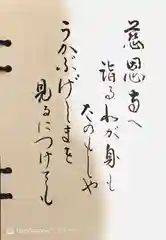 慈恩寺へ
詣るわが身も
たのもしや
うかぶげしまを
見るにつけても